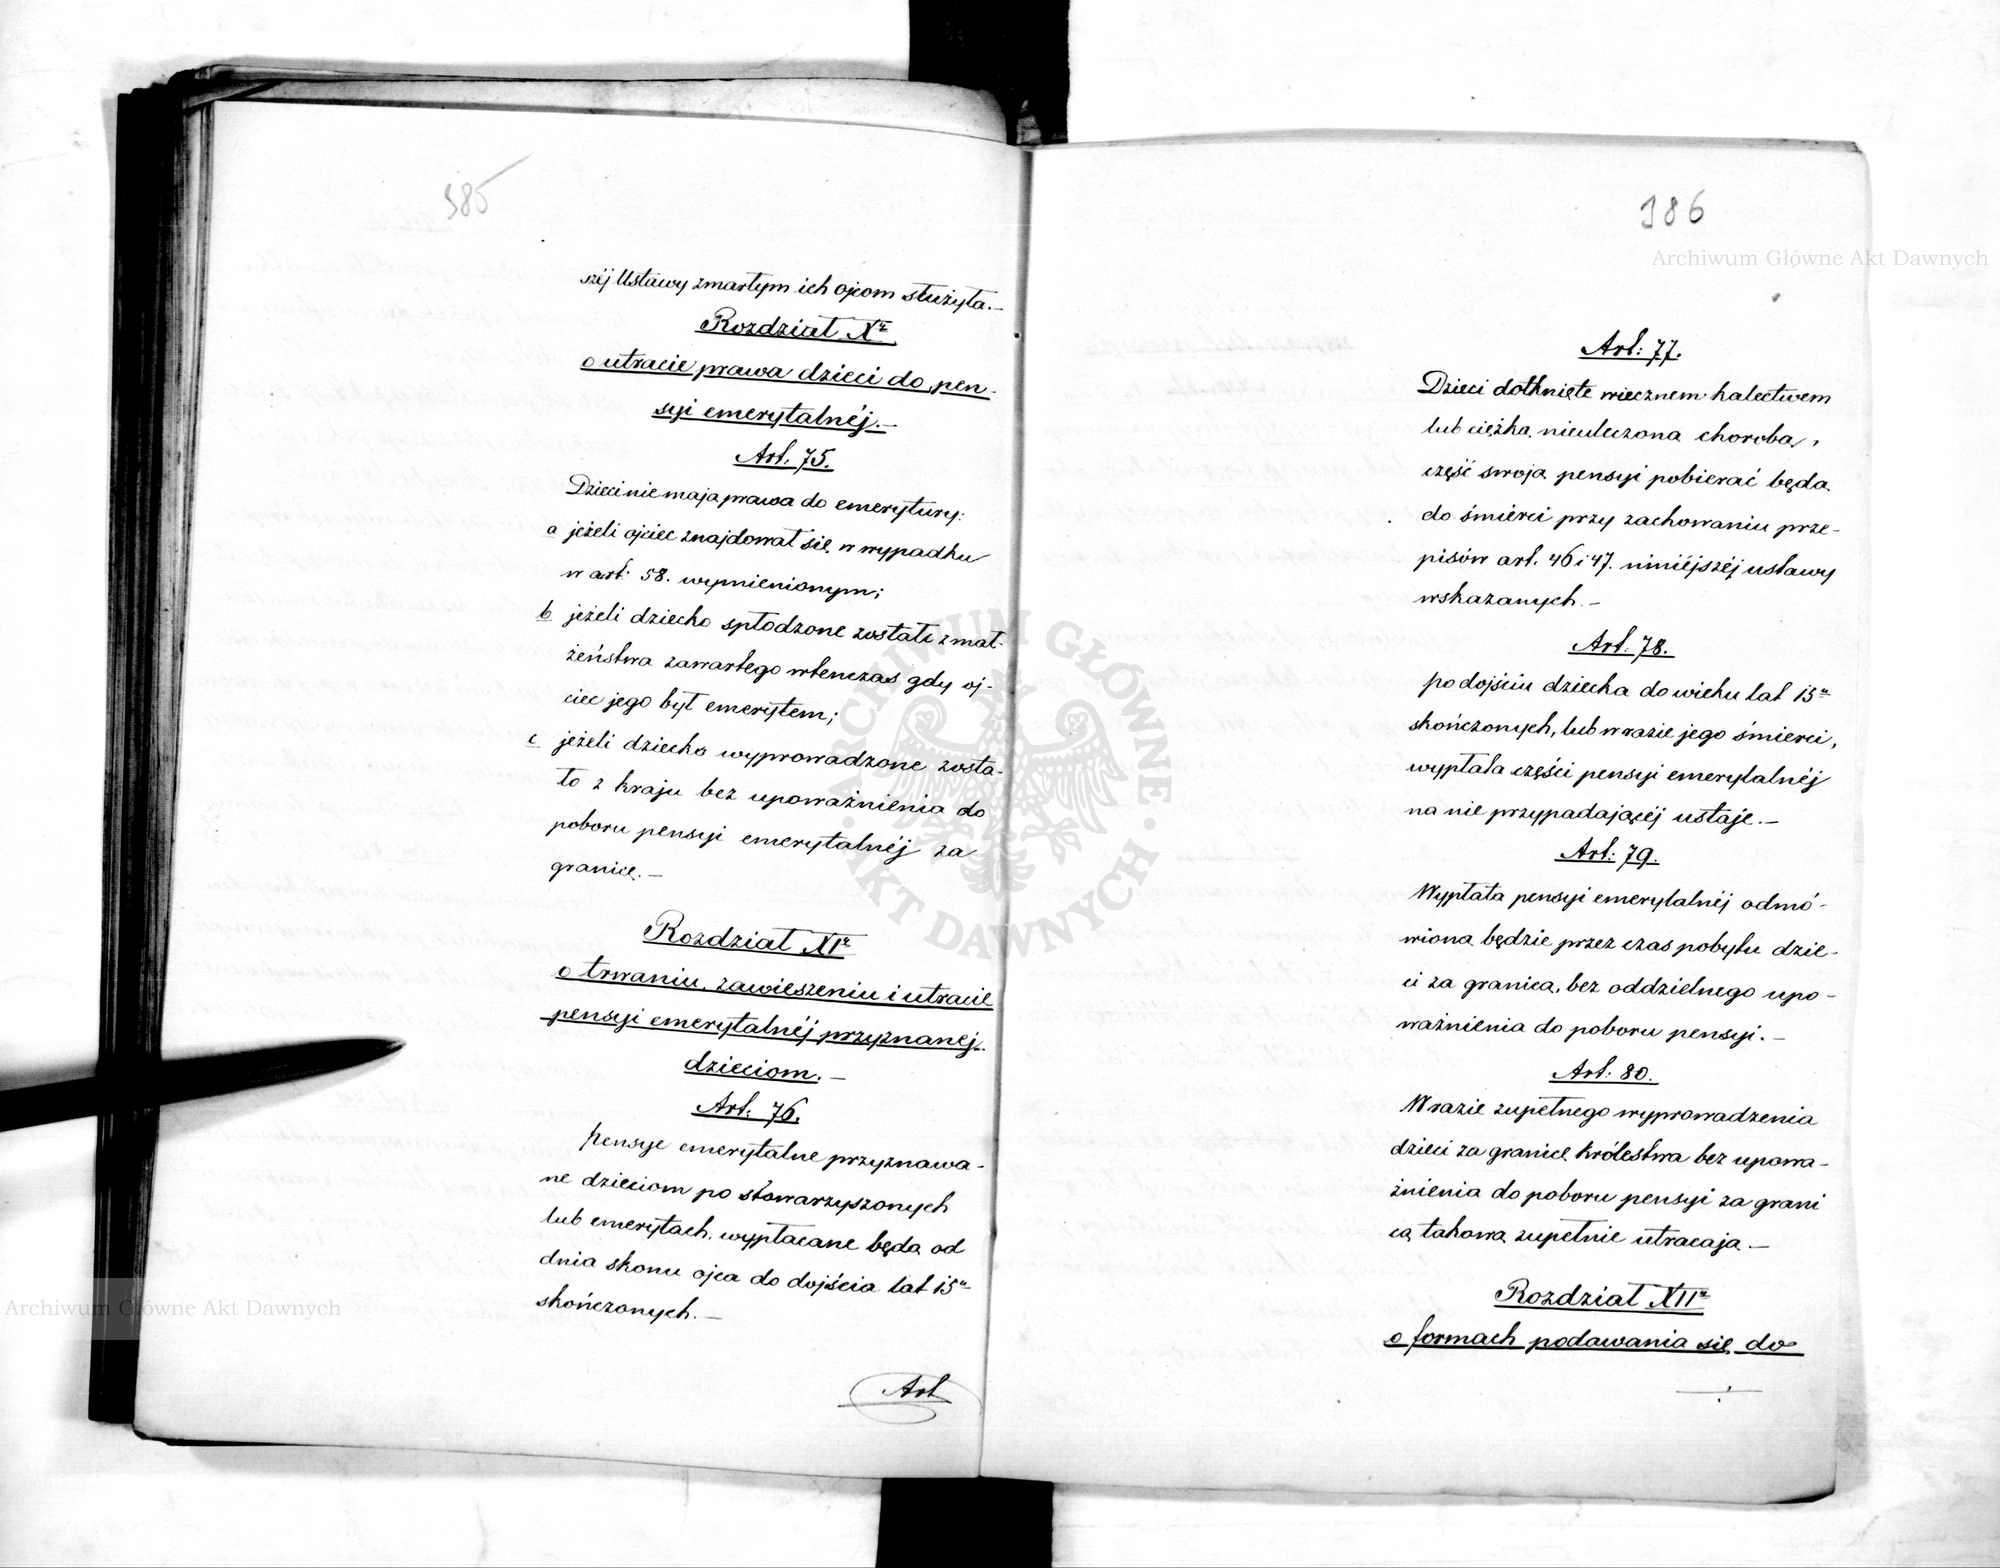 385
széj Ustawy zmarłym ich ojcom służyła.—
Rozdział Xy
o utracie prawa dzieci do pen-
syi emerytalnéj.—
Art. 75.
Dzieci nie mają prawa do emerytury:
a jeżeli ojciec znajdował się w wypadku
w art: 58. wymienionym;
b jeżeli dziecko spłodzone zostało z mał-
żeństwa zawartego wtenczas gdy oj-
ciec jego był emerytem;
c jeżeli dziecko wyprowadzone zosta-
ło z kraju bez upoważnienia do
poboru pensyi emerytalnéj za
granicę.—
Rozdział XIy
o trwaniu, zawieszeniu i utracie
pensyi emerytalnéj przyznanéj
dzieciom.—
Art: 76.
Pensye emerytalne przyznawa-
ne dzieciom po stowarzyszonych
lub emerytach, wypłacane będą od
dnia skonu ojca do dojścia lat 15u
skończonych.—
Art
386
Art: 77.
Dzieci dotknięte wiecznem kalectwem
lub ciężką nieuleczoną chorobą,
część swoją pensyi pobierać będą
do śmierci przy zachowaniu prze-
pisów art. 46 i 47. niniéjszéj ustawy
wskazanych.—
Art: 78.
po dojściu dziecka do wieku lat 15u
skończonych, lub w razie jego śmierci,
wypłata części pensyi emerytalnéj
na nie przypadającéj ustaje.—
Art: 79.
Wypłata pensyi emerytalnéj odmó-
wioną będzie przez czas pobytu dzie-
ci za granicą, bez oddzielnego upo-
ważnienia do poboru pensyi.—
Art: 80.
W razie zupełnego wyprowadzenia
dzieci za granicę królestwa bez upowa-
żnienia do poboru pensyi za grani
cą takową zupełnie utracają.—
Rozdział XIIy
o formach podawania się do
Archiwum Główne Akt Dawnych
Archiwum Główne Akt Dawnych
ARCHIWUM GŁÓWNE AKT DAWNYCH